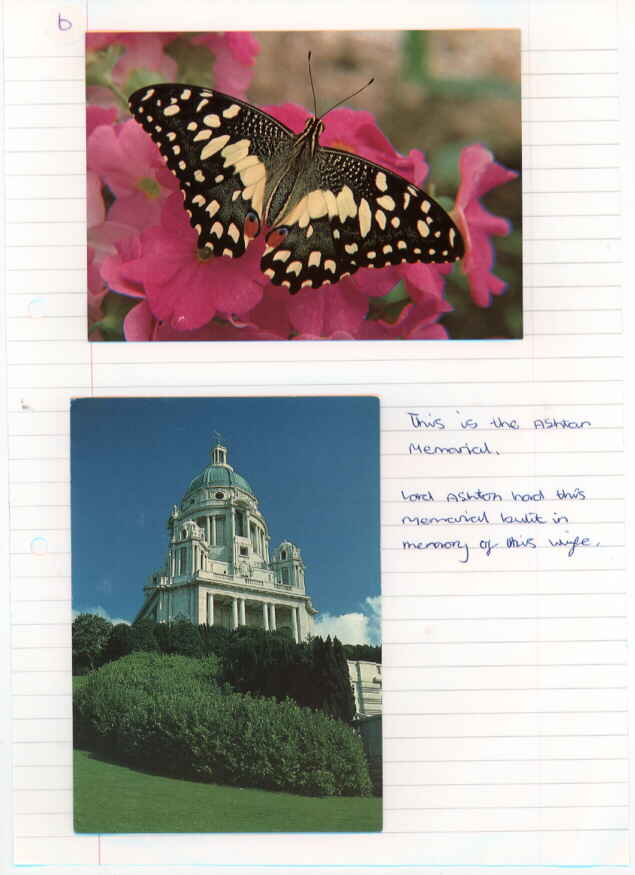 6
This is the Ashton
Memorial.
Lord Ashton had this
Memorial built in
memory of this wife.